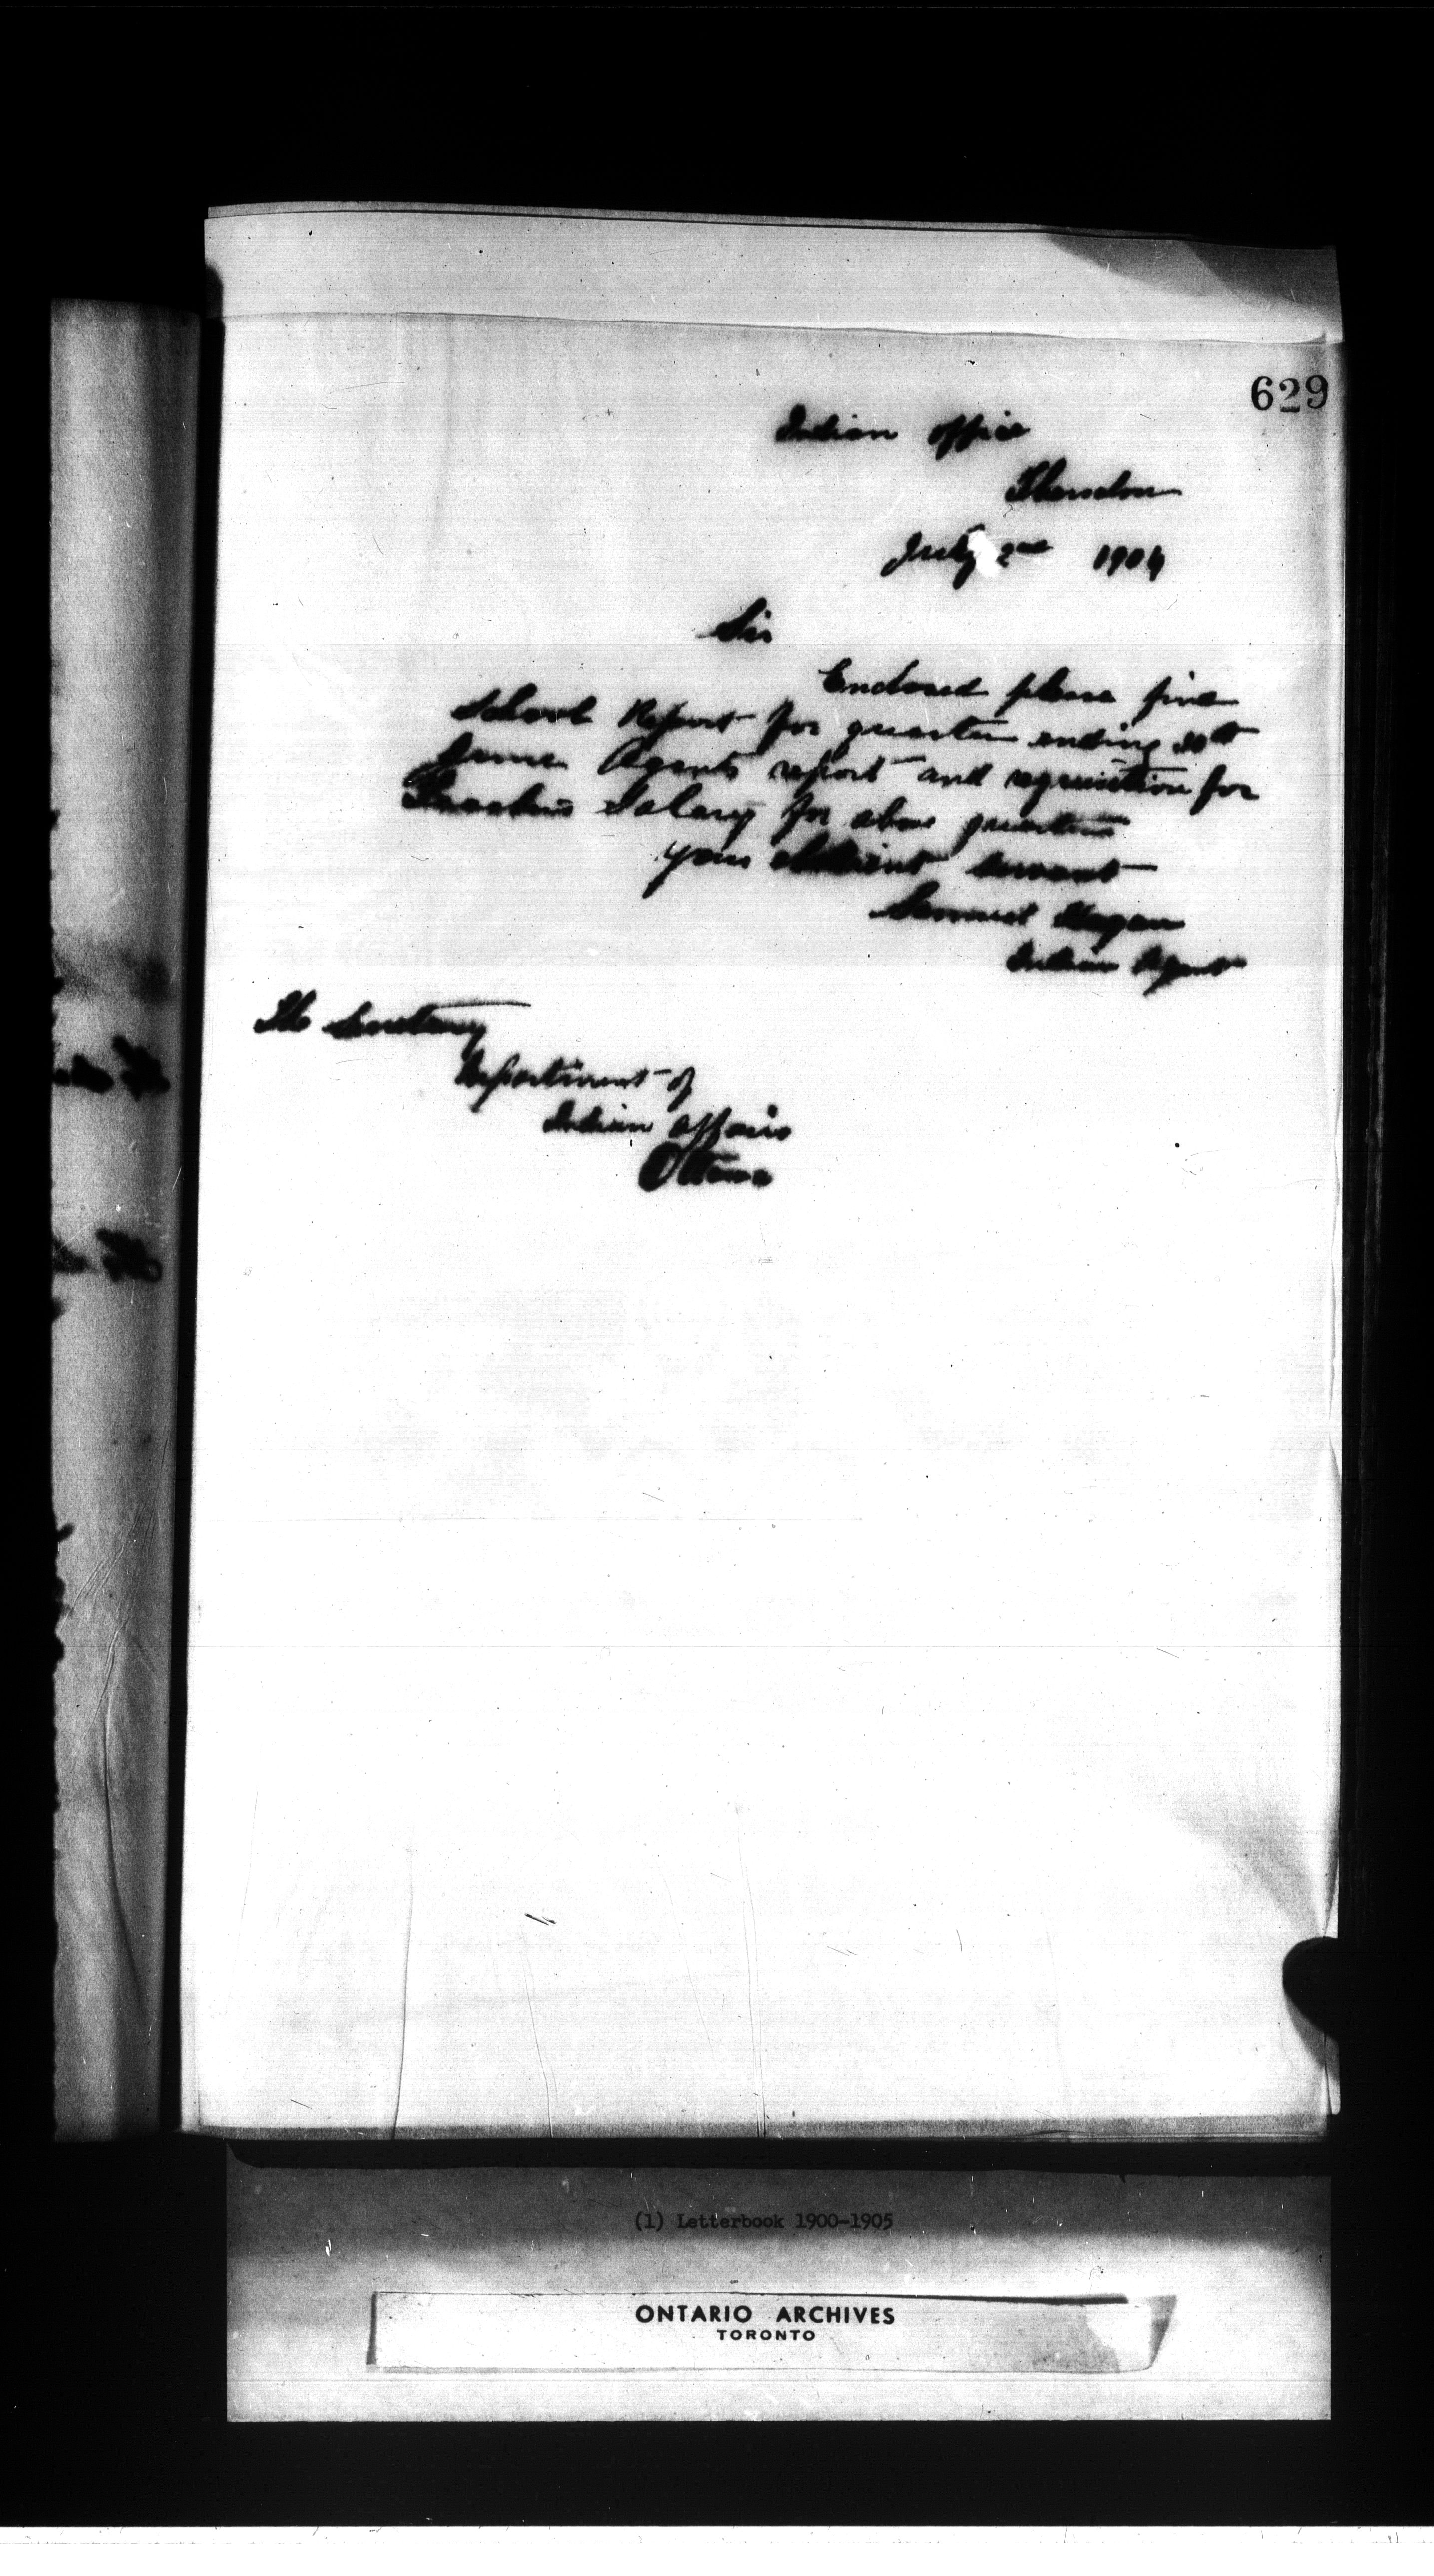 629
Indian Office
Thessalon
July 2nd 1904
Sir
Enclosed please find
School Report for quarter ending 30th
June Agents report and requisition for
Teachers Salary for above quarter
Your obedient servant
Samuel Hagan
Indian Agent
The Secretary
Department of
Indian Affairs
Ottawa
(1) Letterbook 1900-1905
ONTARIO ARCHIVES
TORONTO